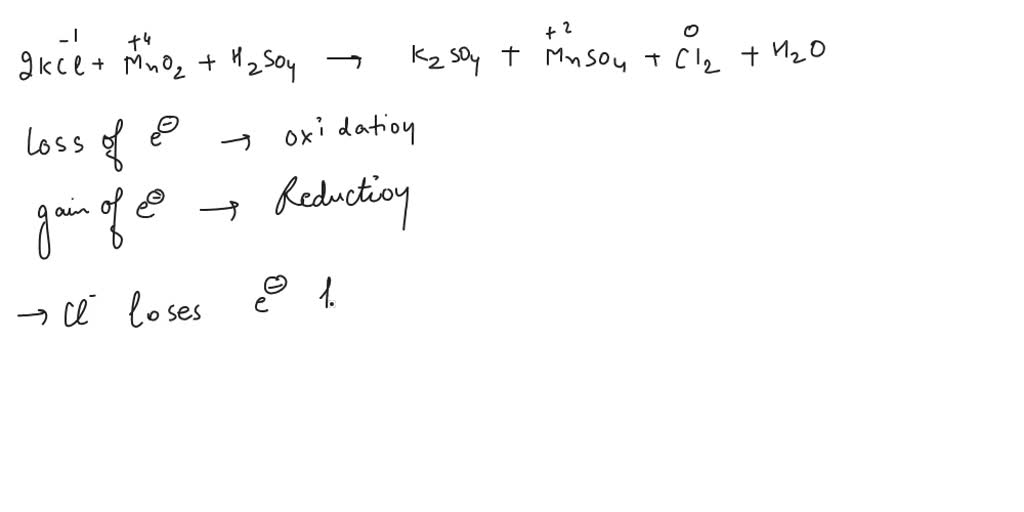 2KCl⁻¹ + Mn⁺⁴O₂ + H₂SO₄ → K₂SO₄ + Mn⁺²SO₄ + Cl₂⁰ + H₂O
loss of e⊖ → oxidation
gain of e⊖ → Reduction
→ Cl⁻ loses e⊖